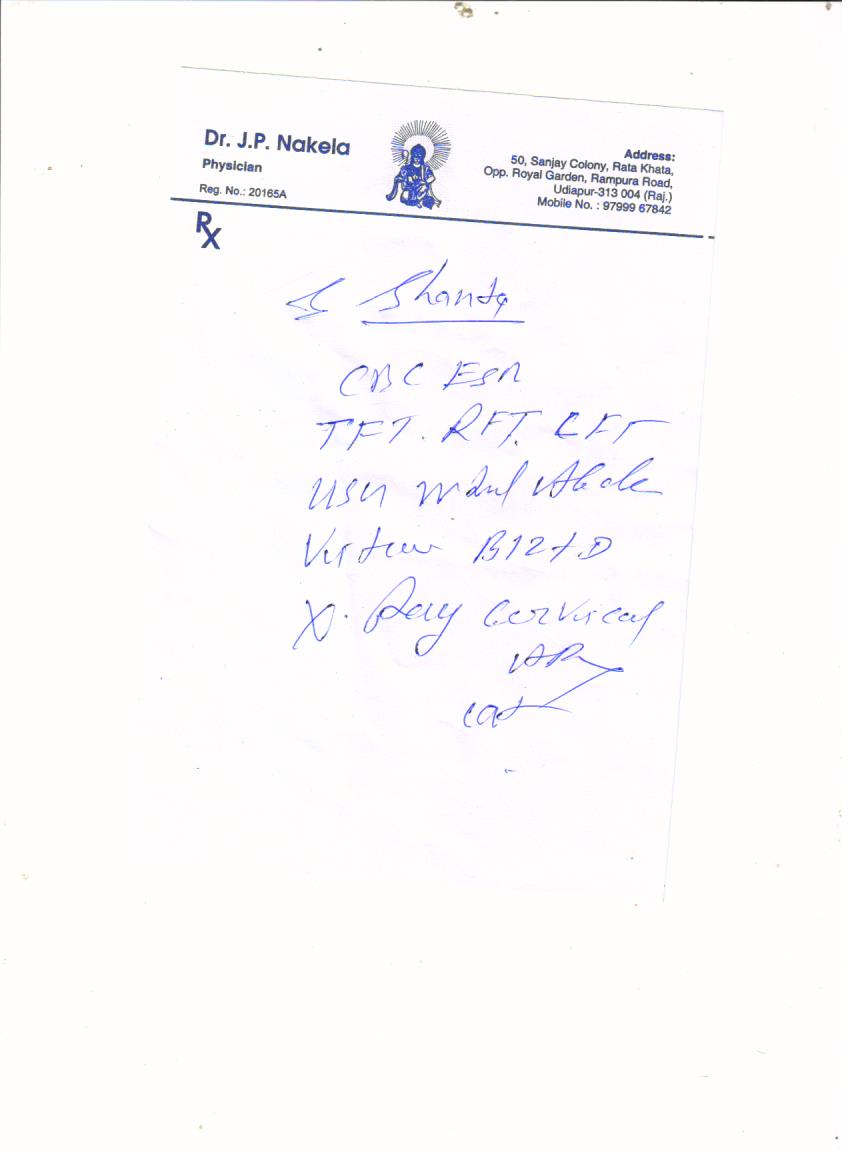 Dr. J.P. Nakela
Physician
Reg. No.: 20165A
Address:
50, Sanjay Colony, Rata Khata,
Opp. Royal Garden, Rampura Road,
Udiapur-313 004 (Raj.)
Mobile No. : 97999 67842
Rx
Shanta
CBC ESR
TFT. RFT. LFT
USG
B12 + D
X. Ray Cervical
AP
Lat